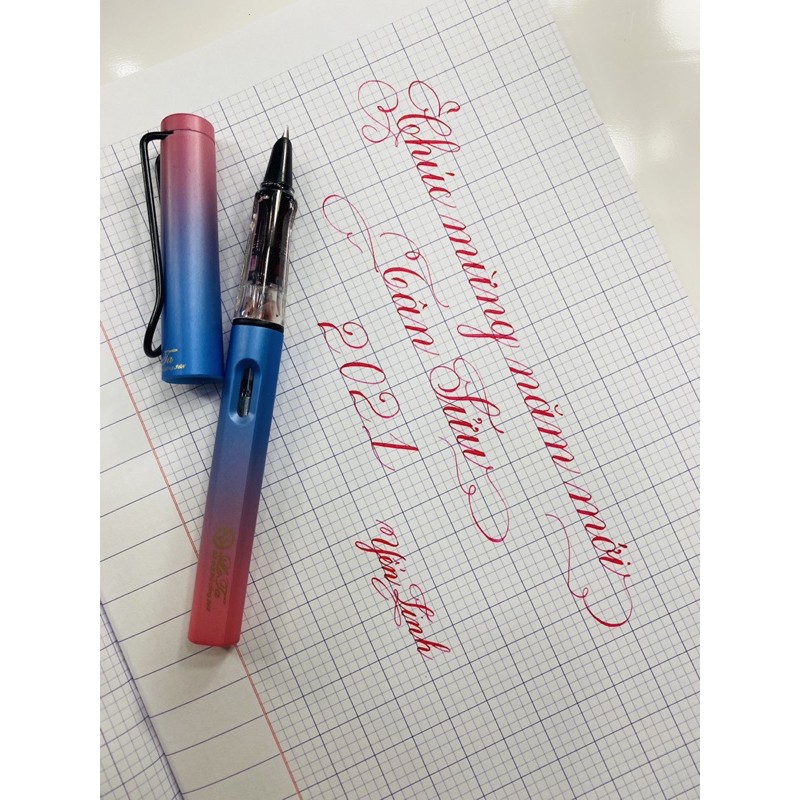 Chúc mừng năm mới
Tân Sửu
2021
Yến Linh